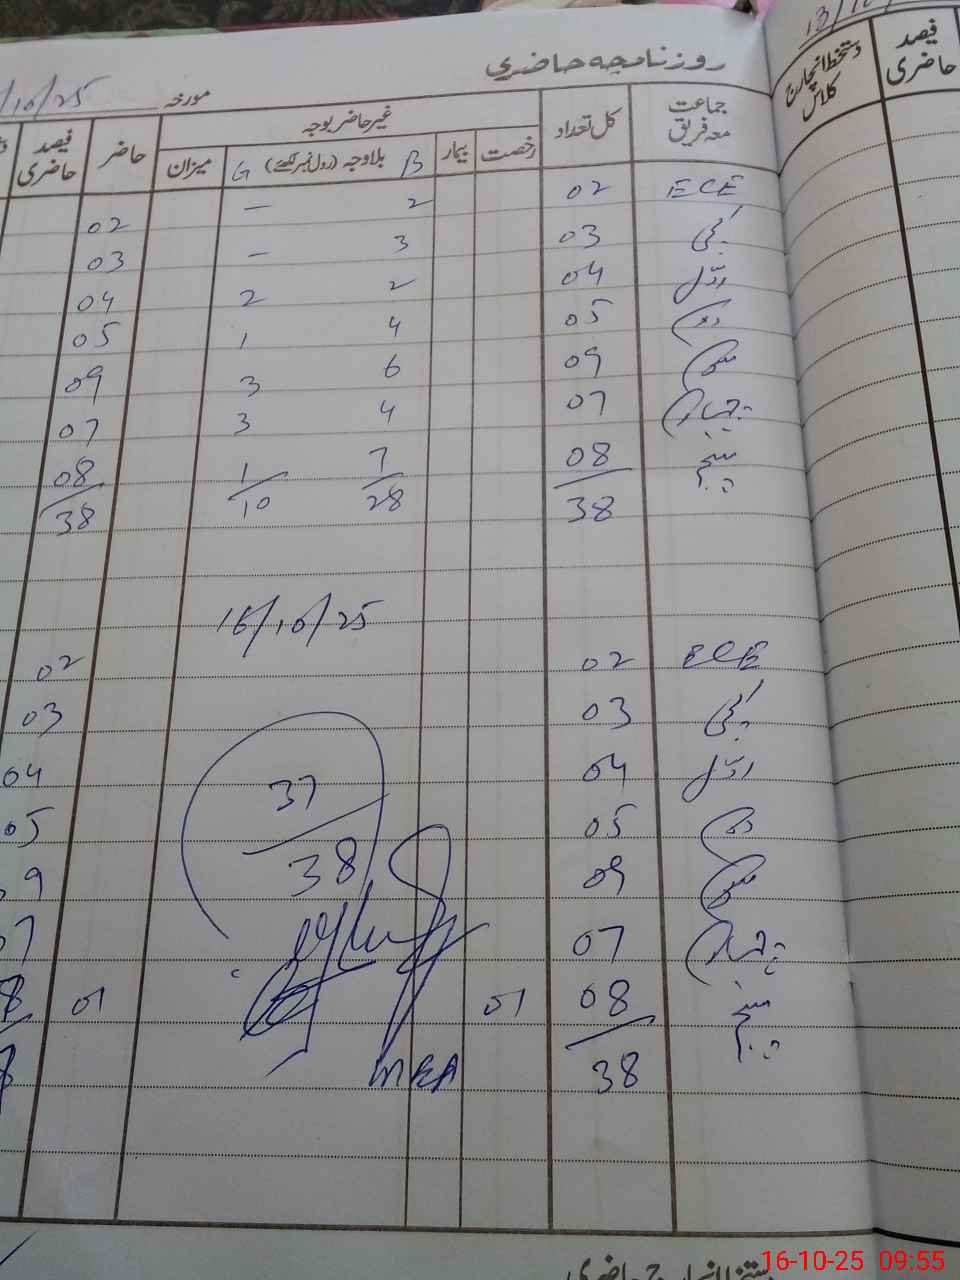 13/10/
روزنامچہ حاضری
مورخہ /10/25
جماعت معہ فریق کل تعداد غیر حاضر بوجہ حاضر فیصد حاضری
رخصت بیمار B بلاوجہ (رول نمبر لکھئے) G میزان
دستخط انچارج کلاس فیصد حاضری
ECE 02 2 – 02
کچی 03 3 – 03
اوّل 04 2 2 04
دوم 05 4 1 05
سوم 09 6 3 09
چہارم 07 4 3 07
پنجم 08 7 1 08
38 28 10 38
16/10/25
ECE 02 02
کچی 03 03
اوّل 04 04
دوم 05 05
سوم 09 9
چہارم 07 07
پنجم 08 01 01 8
38
37
38
MEA
16-10-25 09:55